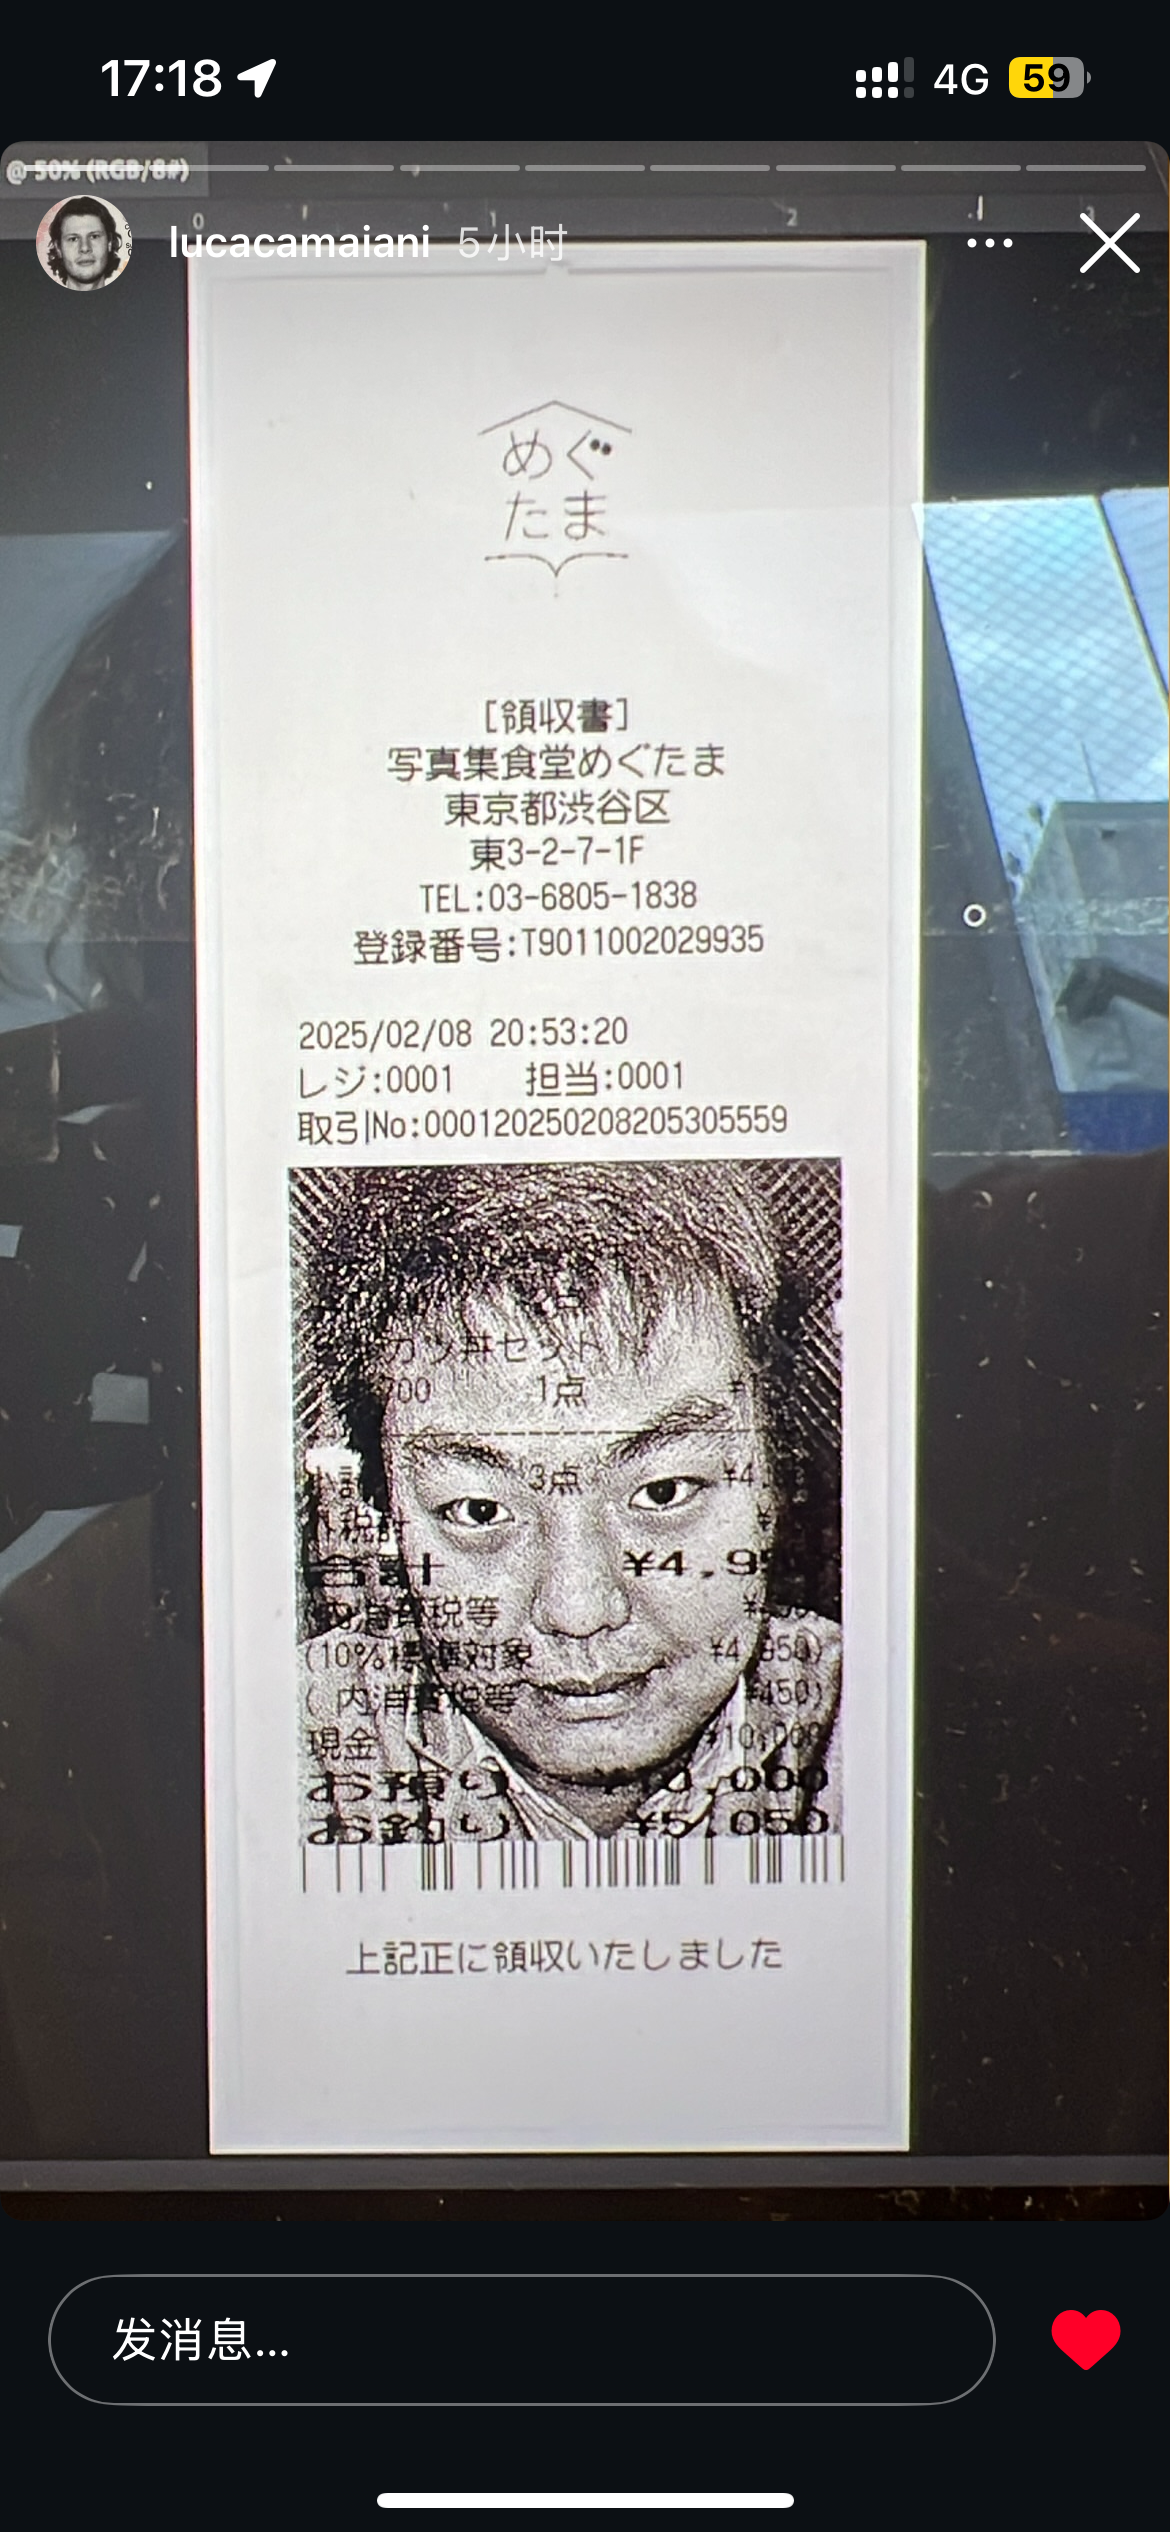 17:18
4G
59
@ 50% (RGB/8#)
0
1
2
3
lucacamaiani 5小时
めぐ
たま
[領収書]
写真集食堂めぐたま
東京都渋谷区
東3-2-7-1F
TEL:03-6805-1838
登録番号:T9011002029935
2025/02/08 20:53:20
レジ:0001 担当:0001
取引No:000120250208205305559
カツ丼セット
1点
3点
合計 ¥4,9
内消費税等
(10%標準対象 ¥4,950)
(内消費税等 ¥450)
現金 ¥10,000
お預り ¥10,000
お釣り ¥5,050
上記正に領収いたしました
发消息...